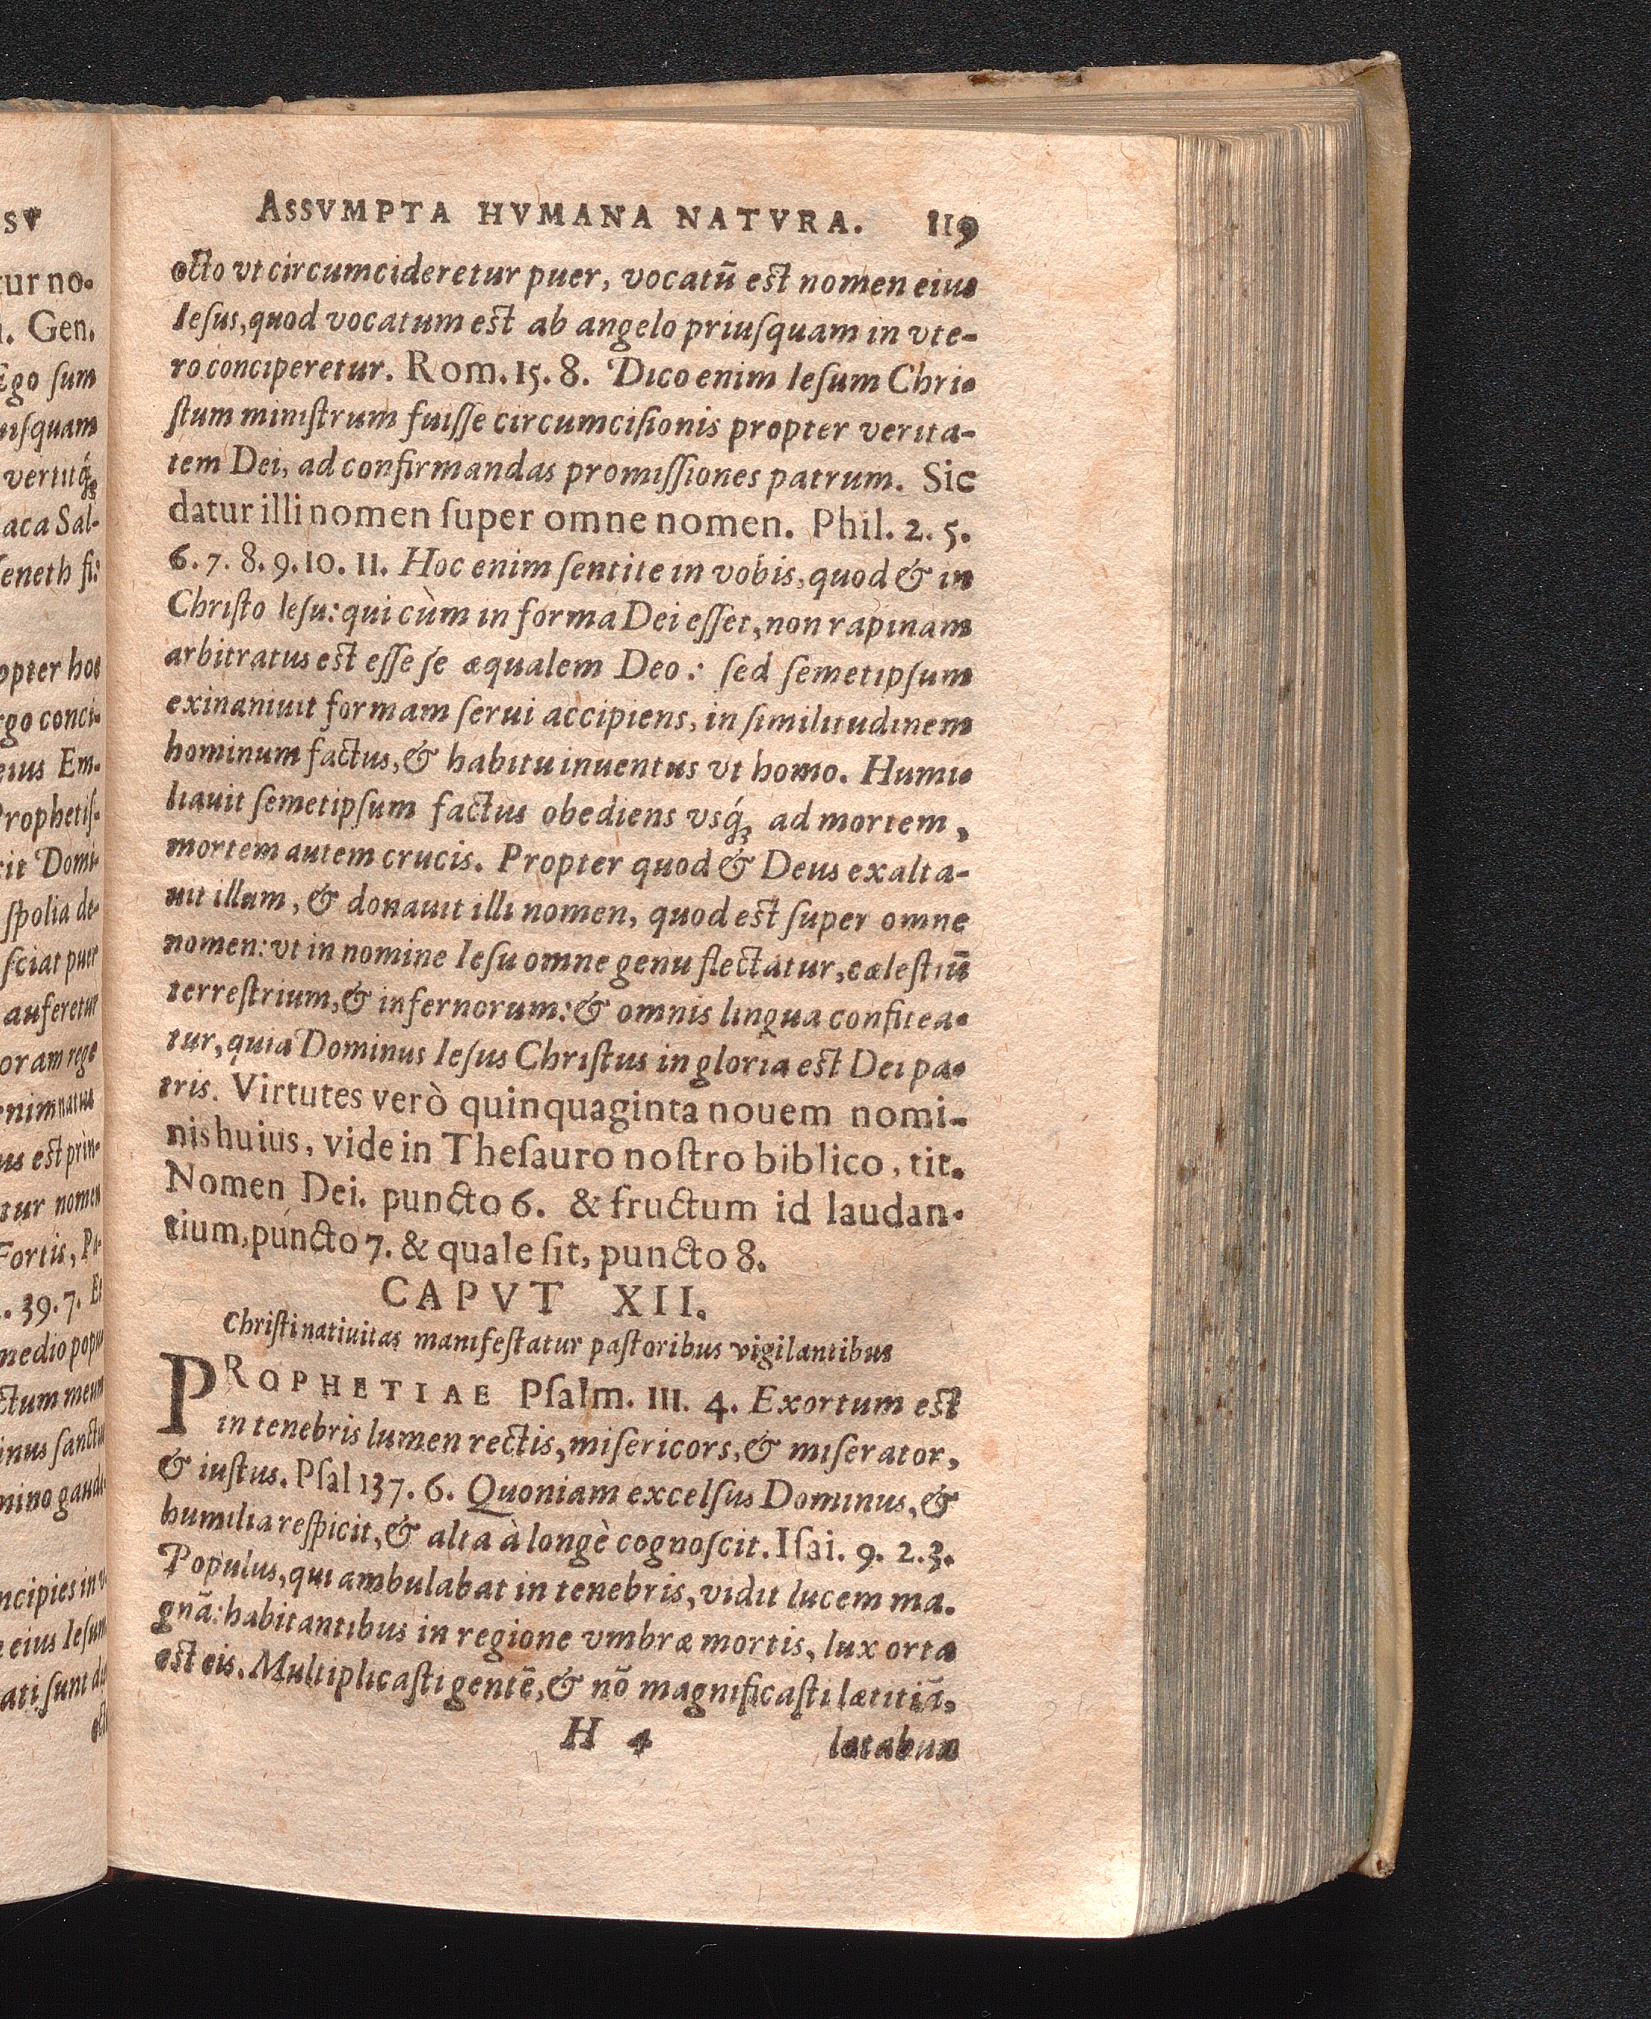 ASSVMPTA HVMANA NATVRA. 119
octo vt circumcideretur puer, vocatū est nomen eius
Iesus, quod vocatum est ab angelo priusquam in vte-
ro conciperetur. Rom. 15. 8. Dico enim Iesum Chri-
stum ministrum fuisse circumcisionis propter verita-
tem Dei, ad confirmandas promissiones patrum. Sic
datur illi nomen super omne nomen. Phil. 2. 5.
6. 7. 8. 9. 10. 11. Hoc enim sentite in vobis, quod & in
Christo Iesu: qui cùm in forma Dei esset, non rapinam
arbitratus est esse se æqualem Deo: sed semetipsum
exinaniuit formam serui accipiens, in similitudinem
hominum factus, & habitu inuentus vt homo. Humi-
liauit semetipsum factus obediens vsq́; ad mortem,
mortem autem crucis. Propter quod & Deus exalta-
uit illum, & donauit illi nomen, quod est super omne
nomen: vt in nomine Iesu omne genu flectatur, cælestiū
terrestrium, & infernorum: & omnis lingua confitea-
tur, quia Dominus Iesus Christus in gloria est Dei pa-
tris. Virtutes verò quinquaginta nouem nomi-
nis huius, vide in Thesauro nostro biblico, tit.
Nomen Dei. puncto 6. & fructum id laudan-
tium, puncto 7. & quale sit, puncto 8.
CAPVT XII.
Christi natiuitas manifestatur pastoribus vigilantibus
PROPHETIAE Psalm. 111. 4. Exortum est
in tenebris lumen rectis, misericors, & miserator,
& iustus. Psal 137. 6. Quoniam excelsus Dominus, &
humilia respicit, & alta à longè cognoscit. Isai. 9. 2. 3.
Populus, qui ambulabat in tenebris, vidit lucem ma-
gnā: habitantibus in regione vmbræ mortis, lux orta
est eis. Multiplicasti gentē, & nō magnificasti lætitiā,
H 4 lætabun